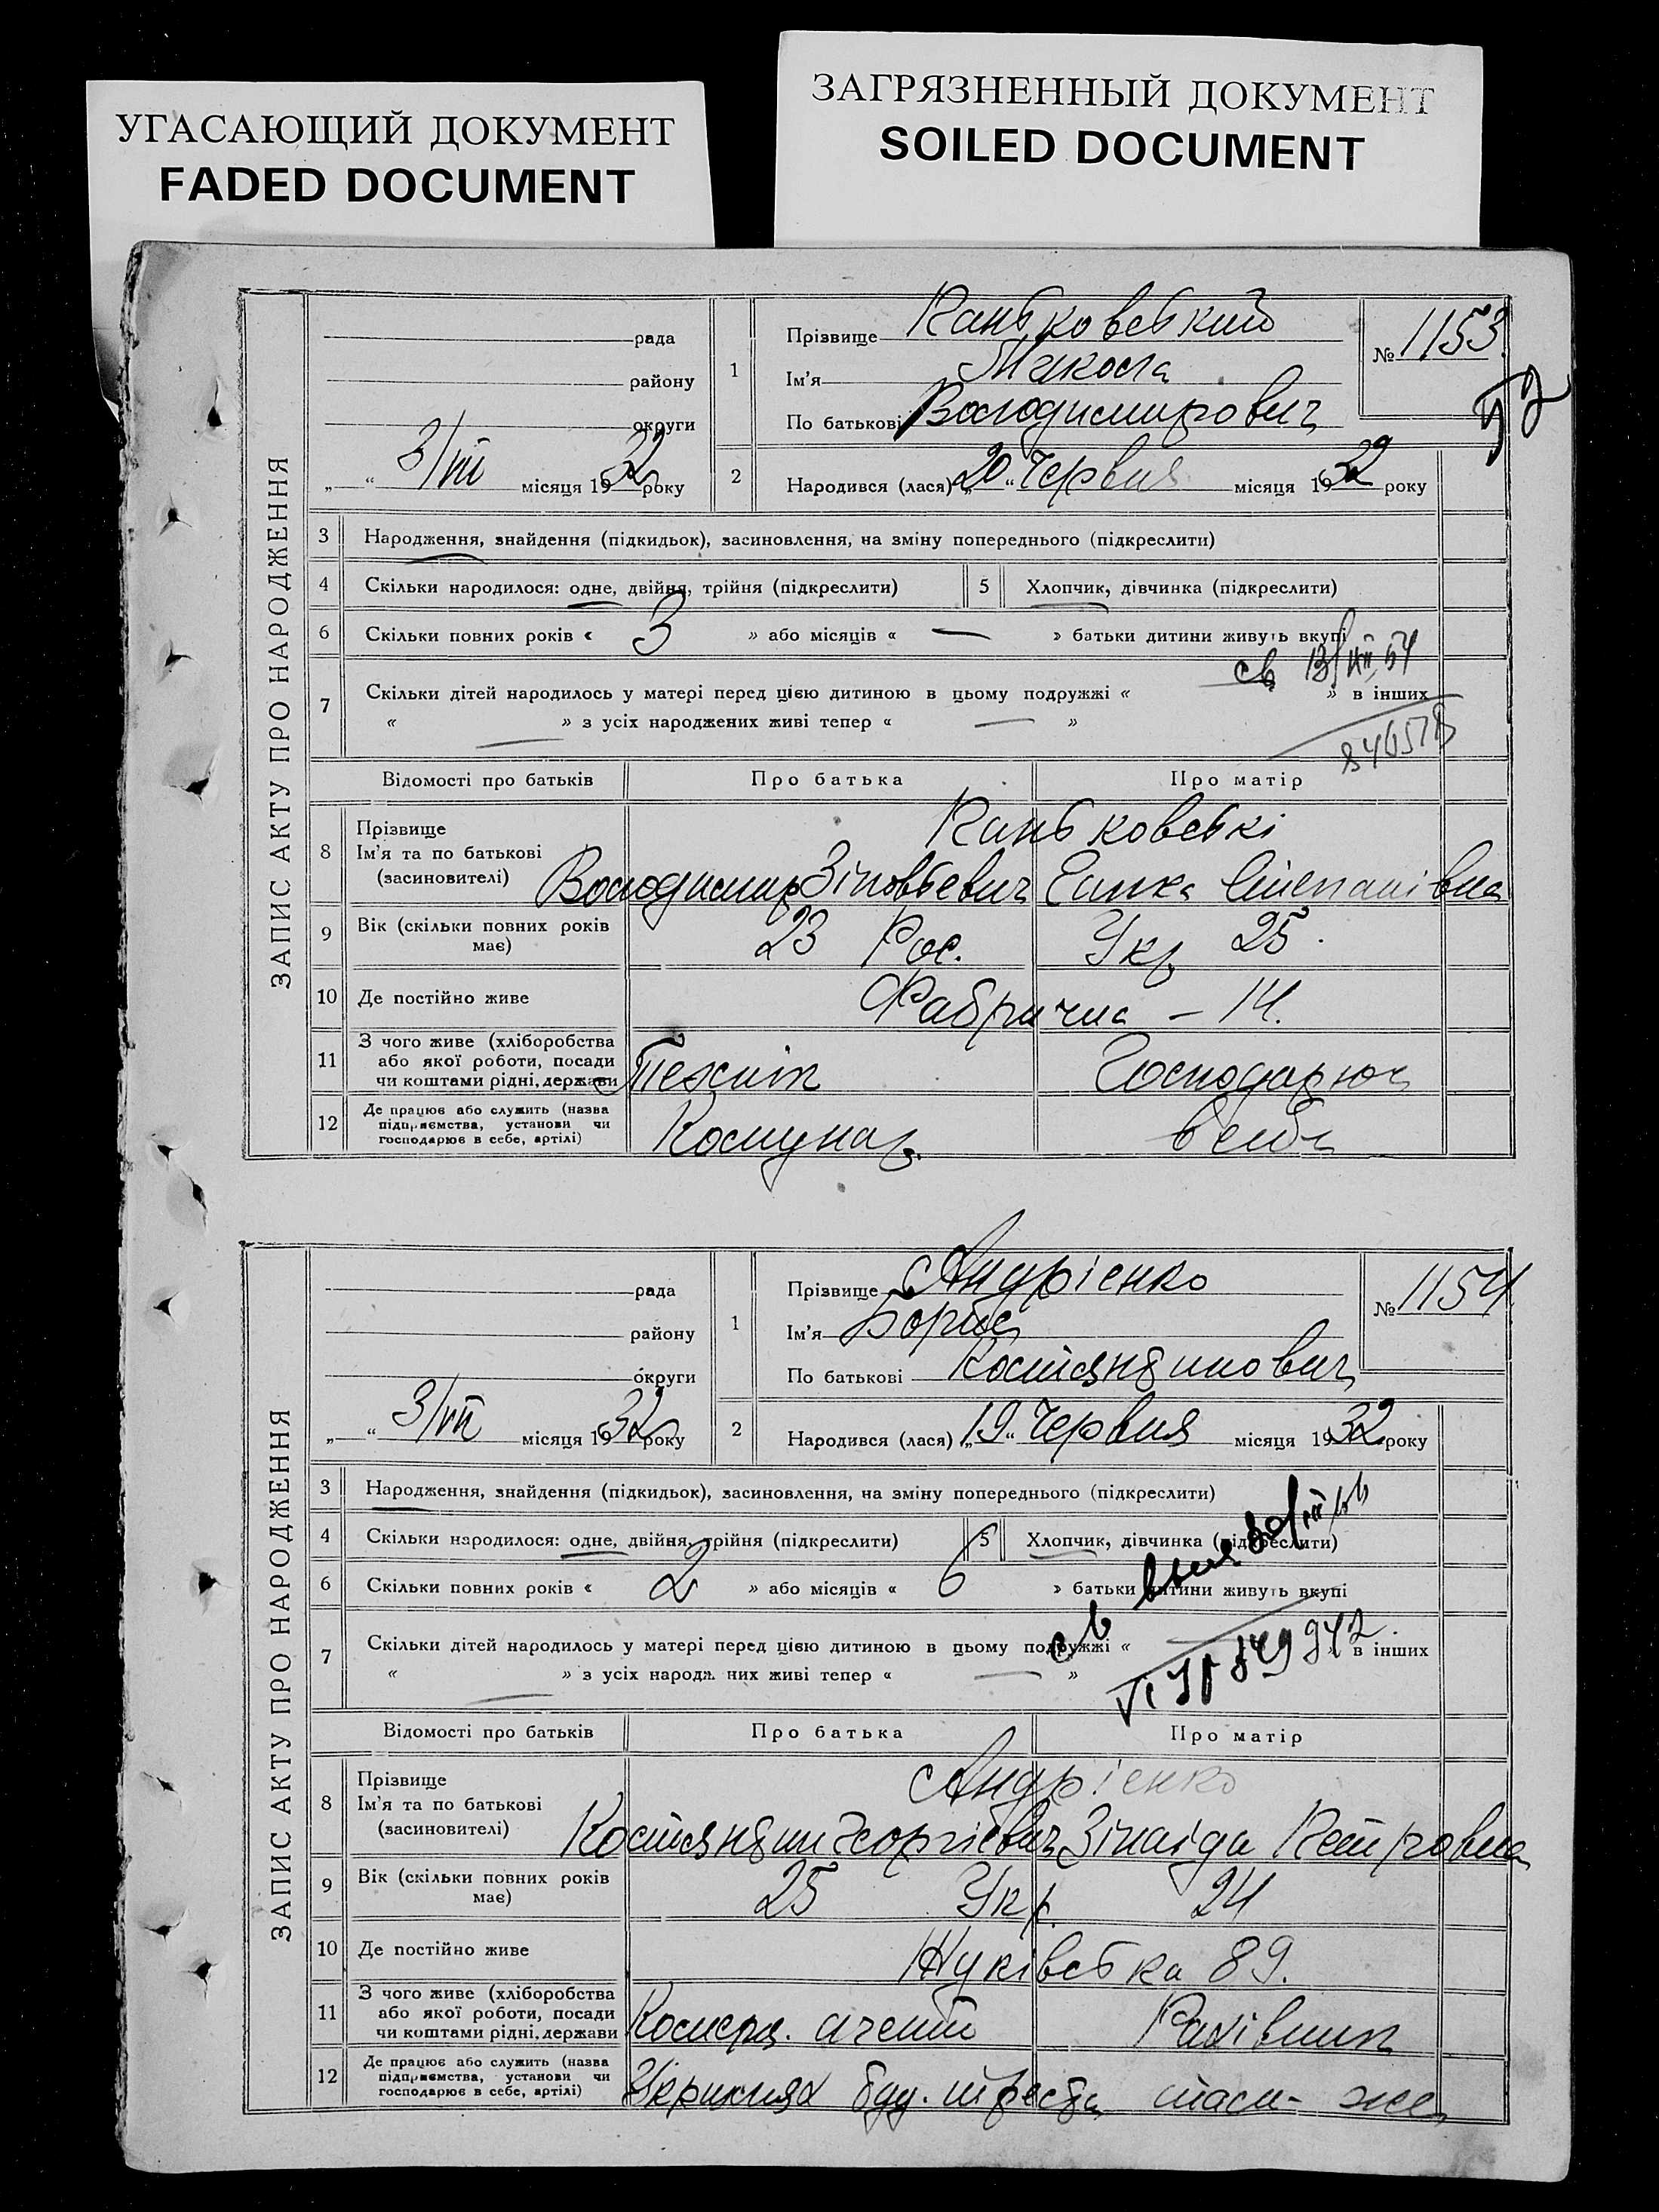 УГАСАЮЩИЙ ДОКУМЕНТ
FADED DOCUMENT
ЗАГРЯЗНЕННЫЙ ДОКУМЕНТ
SOILED DOCUMENT
ЗАПИС АКТУ ПРО НАРОДЖЕННЯ
рада
району
округи
„ “ 3/VII місяця 1932 року
1 Прізвище Каньковський
Ім'я Микола
По батькові Володимирович
№ 1153
2 Народився (лася) „20“ Червня місяця 1932 року
3 Народження, знайдення (підкидьок), засиновлення, на зміну попереднього (підкреслити)
4 Скільки народилося: одне, двійня, трійня (підкреслити) 5 Хлопчик, дівчинка (підкреслити)
6 Скільки повних років « 3 » або місяців « — » батьки дитини живуть вкупі
7 Скільки дітей народилось у матері перед цією дитиною в цьому подружжі « » в інших
« — » з усіх народжених живі тепер « — »
Відомості про батьків Про батька Про матір
8 Прізвище Каньковські
Ім'я та по батькові
(засиновителі) Володимир Зіновьевич
9 Вік (скільки повних років має) 23 Рос. Укр 25.
10 Де постійно живе Фабрична – 14.
11 З чого живе (хліборобства або якої роботи, посади чи коштами рідні, держави Технік Господарює
12 Де працює або служить (назва підприємства, установи чи господарює в себе, артілі) Комунар. в себе
ЗАПИС АКТУ ПРО НАРОДЖЕННЯ
рада
району
округи
„ “ 3/VII місяця 1932 року
1 Прізвище Андрієнко
Ім'я Борис
По батькові Костянтинович
№ 1154
2 Народився (лася) „19“ Червня місяця 1932 року
3 Народження, знайдення (підкидьок), засиновлення, на зміну попереднього (підкреслити)
4 Скільки народилося: одне, двійня, трійня (підкреслити) 5 Хлопчик, дівчинка (підкреслити)
6 Скільки повних років « 2 » або місяців « 6 » батьки дитини живуть вкупі
7 Скільки дітей народилось у матері перед цією дитиною в цьому подружжі « » в інших
« — » з усіх народжених живі тепер « — »
Відомості про батьків Про батька Про матір
8 Прізвище Андрієнко
Ім'я та по батькові
(засиновителі) Костянтин Георгієвич Зінаіда Петровна
9 Вік (скільки повних років має) 25 Укр. 24
10 Де постійно живе Жуківська 89.
11 З чого живе (хліборобства або якої роботи, посади чи коштами рідні, держави Комерц. агент Рахівник
12 Де працює або служить (назва підприємства, установи чи господарює в себе, артілі) буд. треста там-же